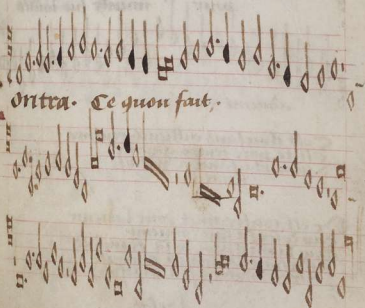 ontra· Ce quon fait·